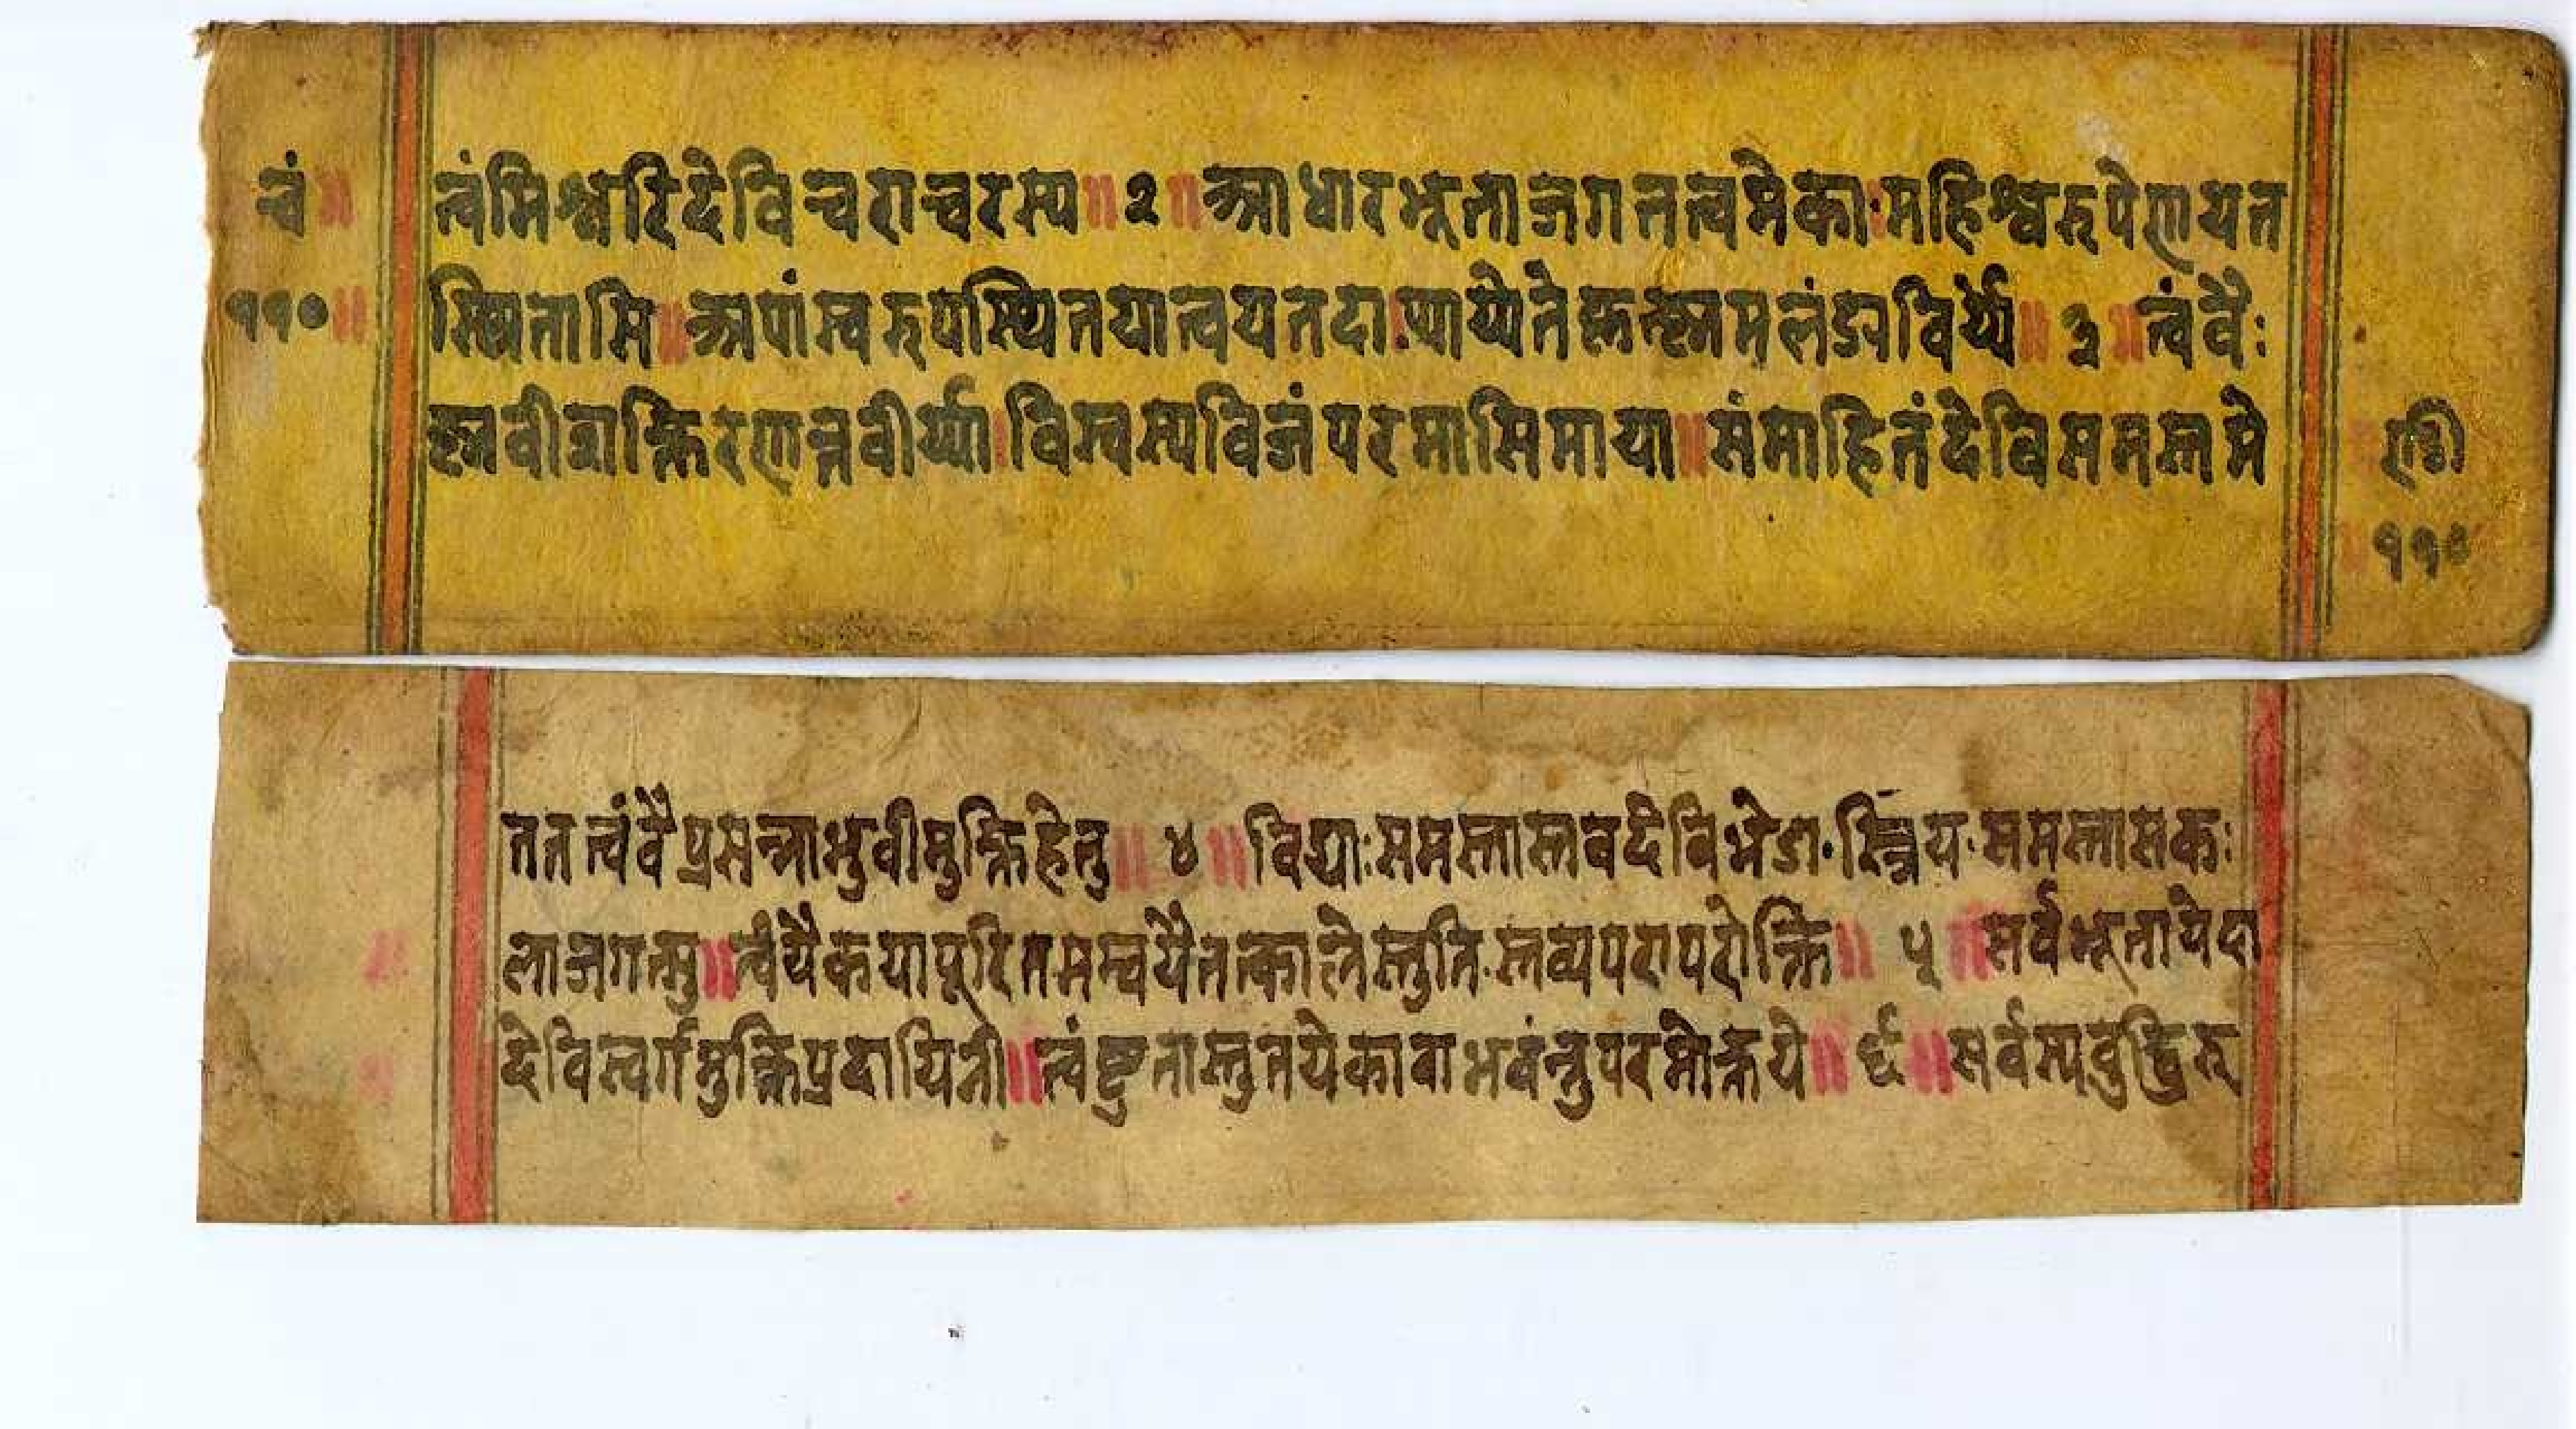 चं॥
११०॥
त्वंमिश्वरिदेविचराचरस्य॥२॥आधारभूताजगतत्वमेकाःमहिश्वरुपेणयत
स्थितासि॥अपांस्वरुपस्थितयात्वयतदा।प्यायेतेकृत्स्नमलंङावियै॥३॥त्वंवैः
ष्नवीशक्तिरणन्तवीर्य्या।विस्वस्यविजंपरमासिमाया॥संमोहितंदेविसमस्तमे
ण्डी
११०
तत त्वंवैप्रसन्नाभुवीमुक्तिहेतु॥४॥विद्याःसमस्तास्तवदेविभेदा॰स्त्रिय॰समस्तासकः
लाजगत्सु॥त्वंयैकयापूरितमम्वयैतत्कास्तेस्तुति॰स्तव्यपरापरोक्ति॥५॥सर्वभूतायेदा
देविस्वर्गमुक्तिप्रदायिनी॥त्वंष्टुतास्तुतयेकावाभवंन्तुपरमोक्तये॥६॥सर्वस्यवुद्धिरू